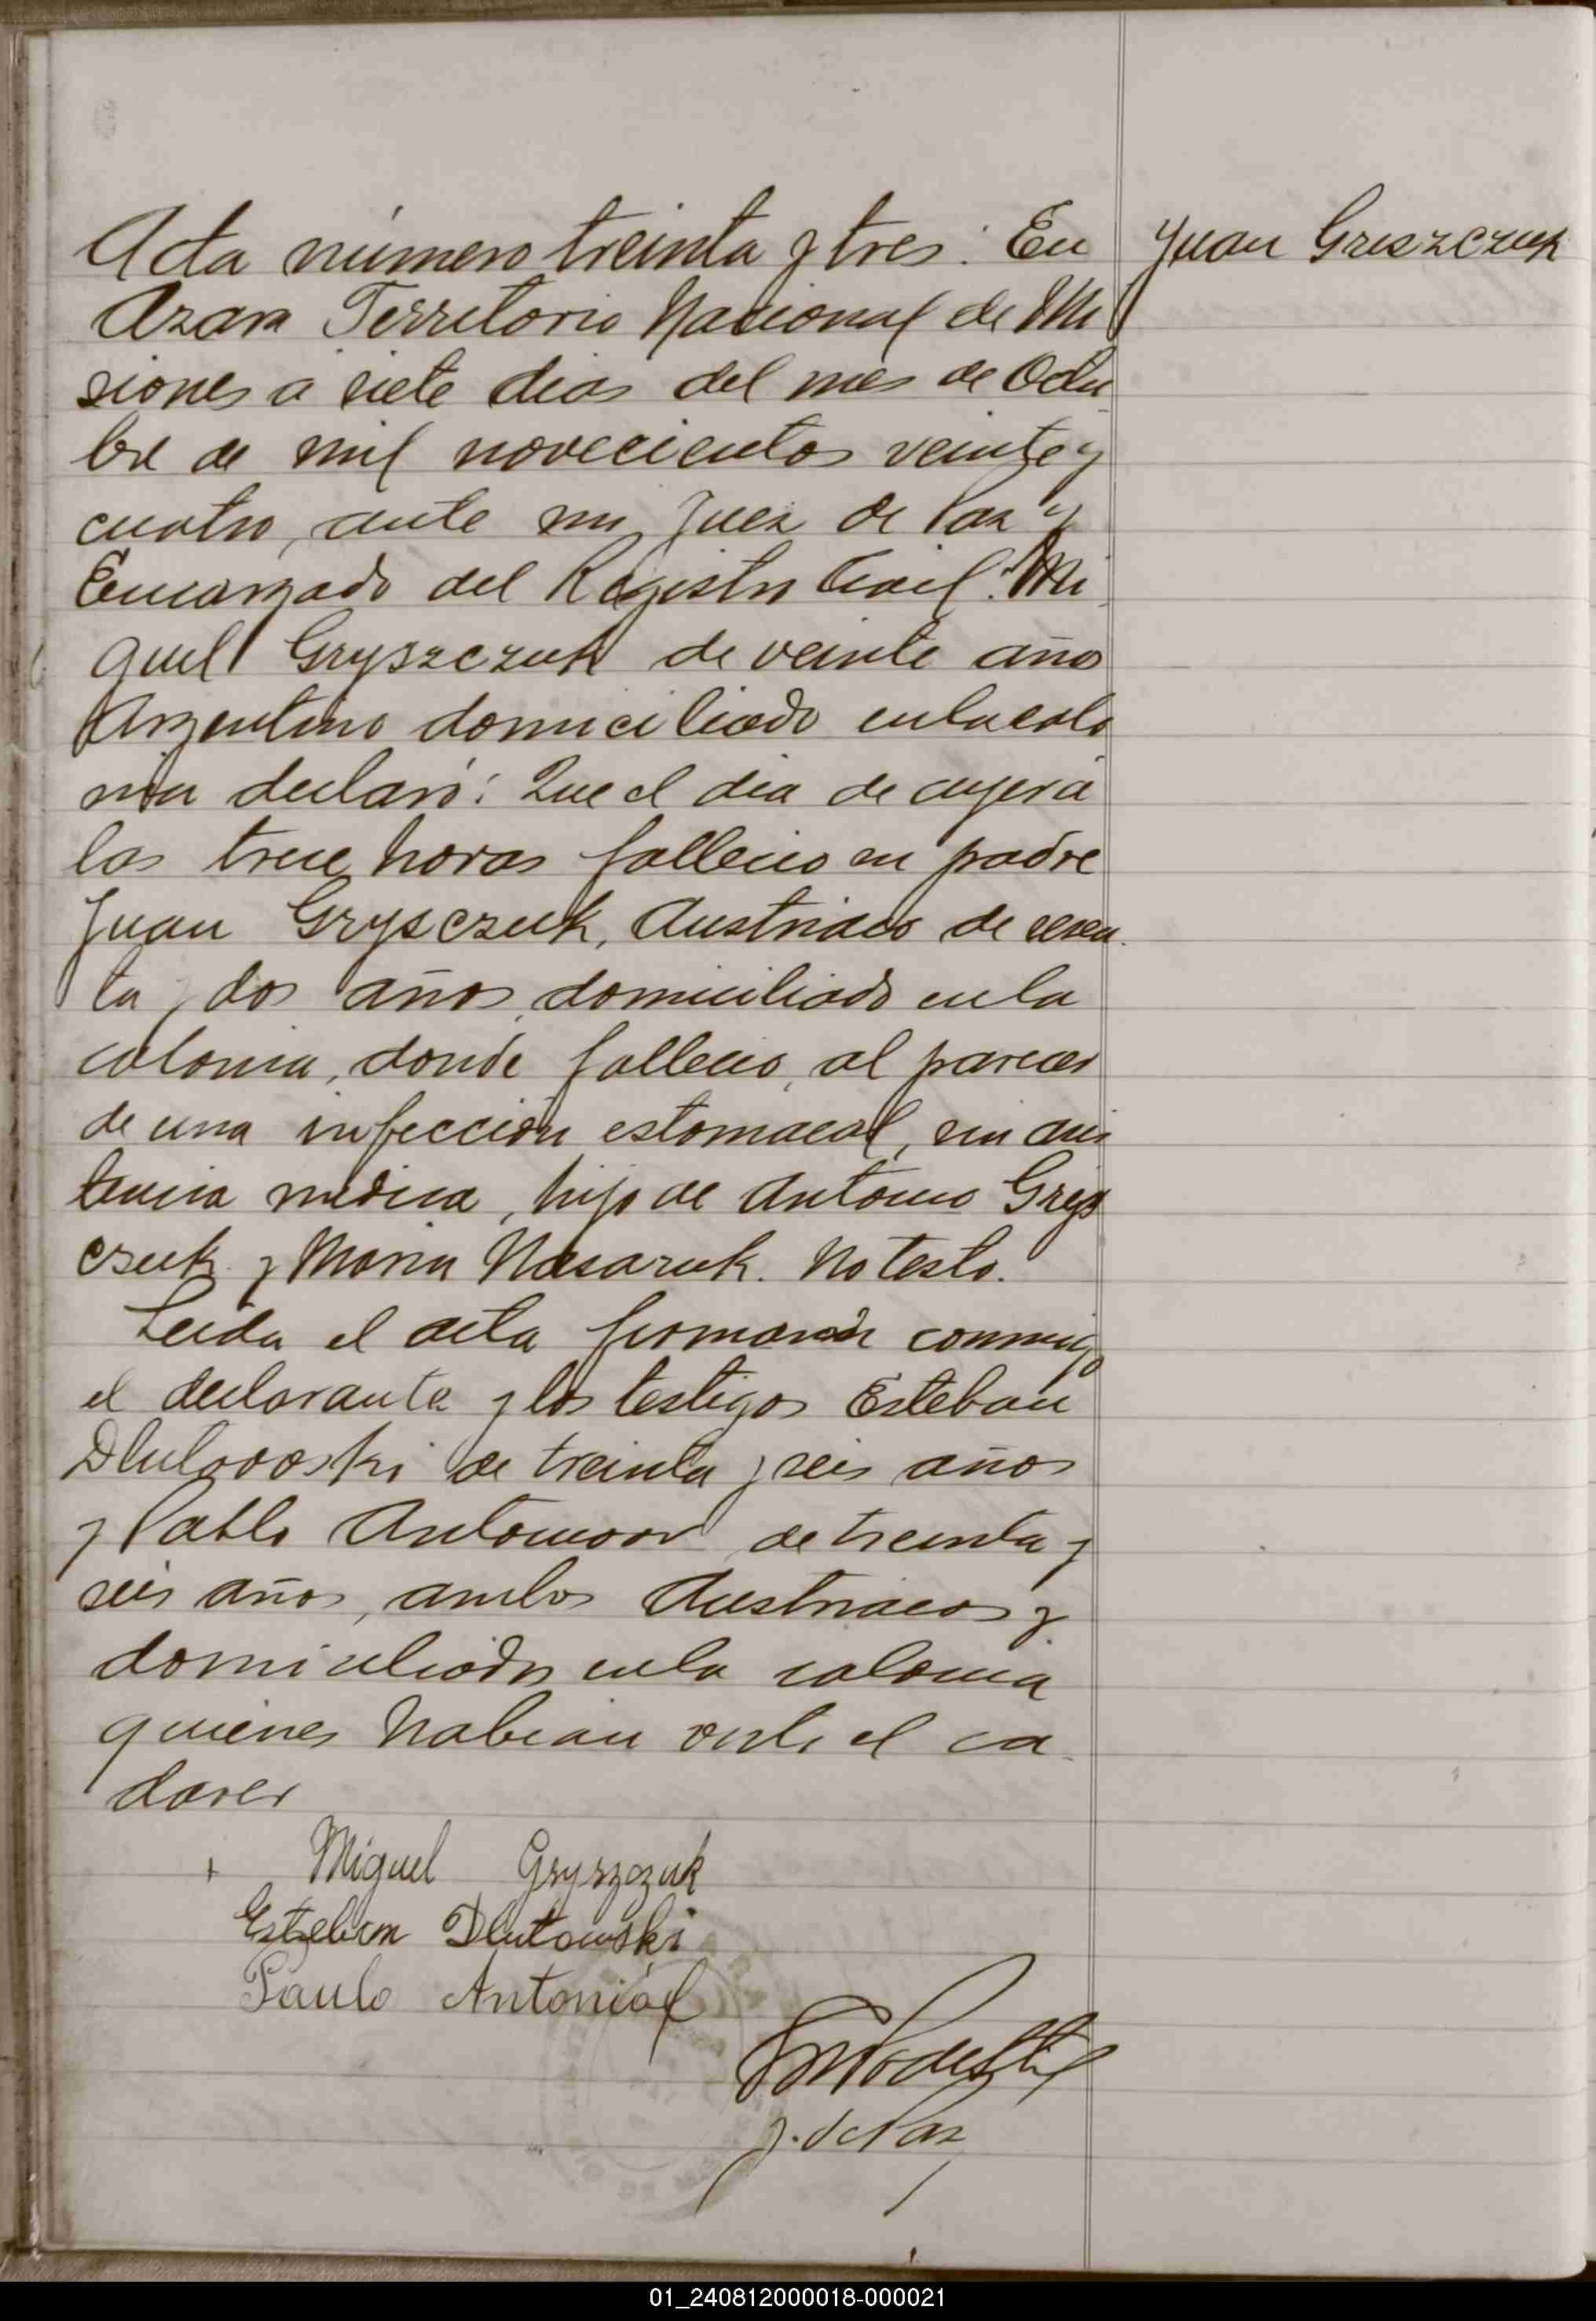 Acta número treinta y tres: En
Juan Griszczuk
Azara Territorio Nacional de Mi
siones a siete dias del mes de Octu
bre de mil novecientos veinte y
cuatro, ante mi, Juez de Paz y
Encargado del Registro Civil: Mi
guel Gryszczuk de veinte años
Argentino domiciliado en la colo
nia declaró: Que el dia de ayer a
las trece horas fallecio su padre
Juan Grysczuk, Austriaco de sesen
ta y dos años, domiciliado en la
colonia, donde fallecio, al parecer
de una infección estomacal, sin asis
tencia medica, hijo de Antonio Grys
czuk y Maria Nasaruk. No testo.
Leida el acta firmaron conmigo
el declarante y los testigos Esteban
Dlutowoski de treinta y seis años
y Pablo de treinta y
seis años, ambos Austriacos y
domiciliados en la colonia
quienes habian visto el ca
daver
+ Miguel Gryszczuk
Esteban Dlutowski
Paulo Antoniól
J. de Paz
01_240812000018-000021